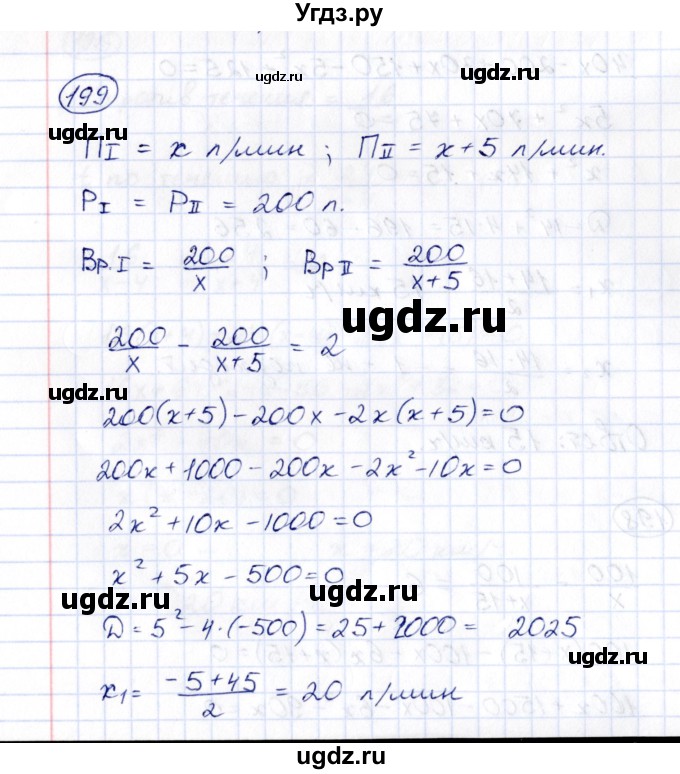 Угдз.ру
199
ugdz.ru
ugdz.ru
ugdz.ru
П I = x л/мин ; П II = x+5 л/мин.
P I = P II = 200 л.
ugdz.ru
Вр. I = 200/x ; Вр II = 200/(x+5)
ugdz.ru
200/x - 200/(x+5) = 2
ugdz.ru
200(x+5)-200x-2x(x+5)=0
200x+1000-200x-2x²-10x=0
ugdz.ru
ugdz.ru
2x²+10x-1000=0
x²+5x-500=0
ugdz.ru
ugdz.ru
Д = 5²-4·(-500)=25+2000= 2025
ugdz.ru
x₁= (-5+45)/2 = 20 л/мин
ugdz.ru